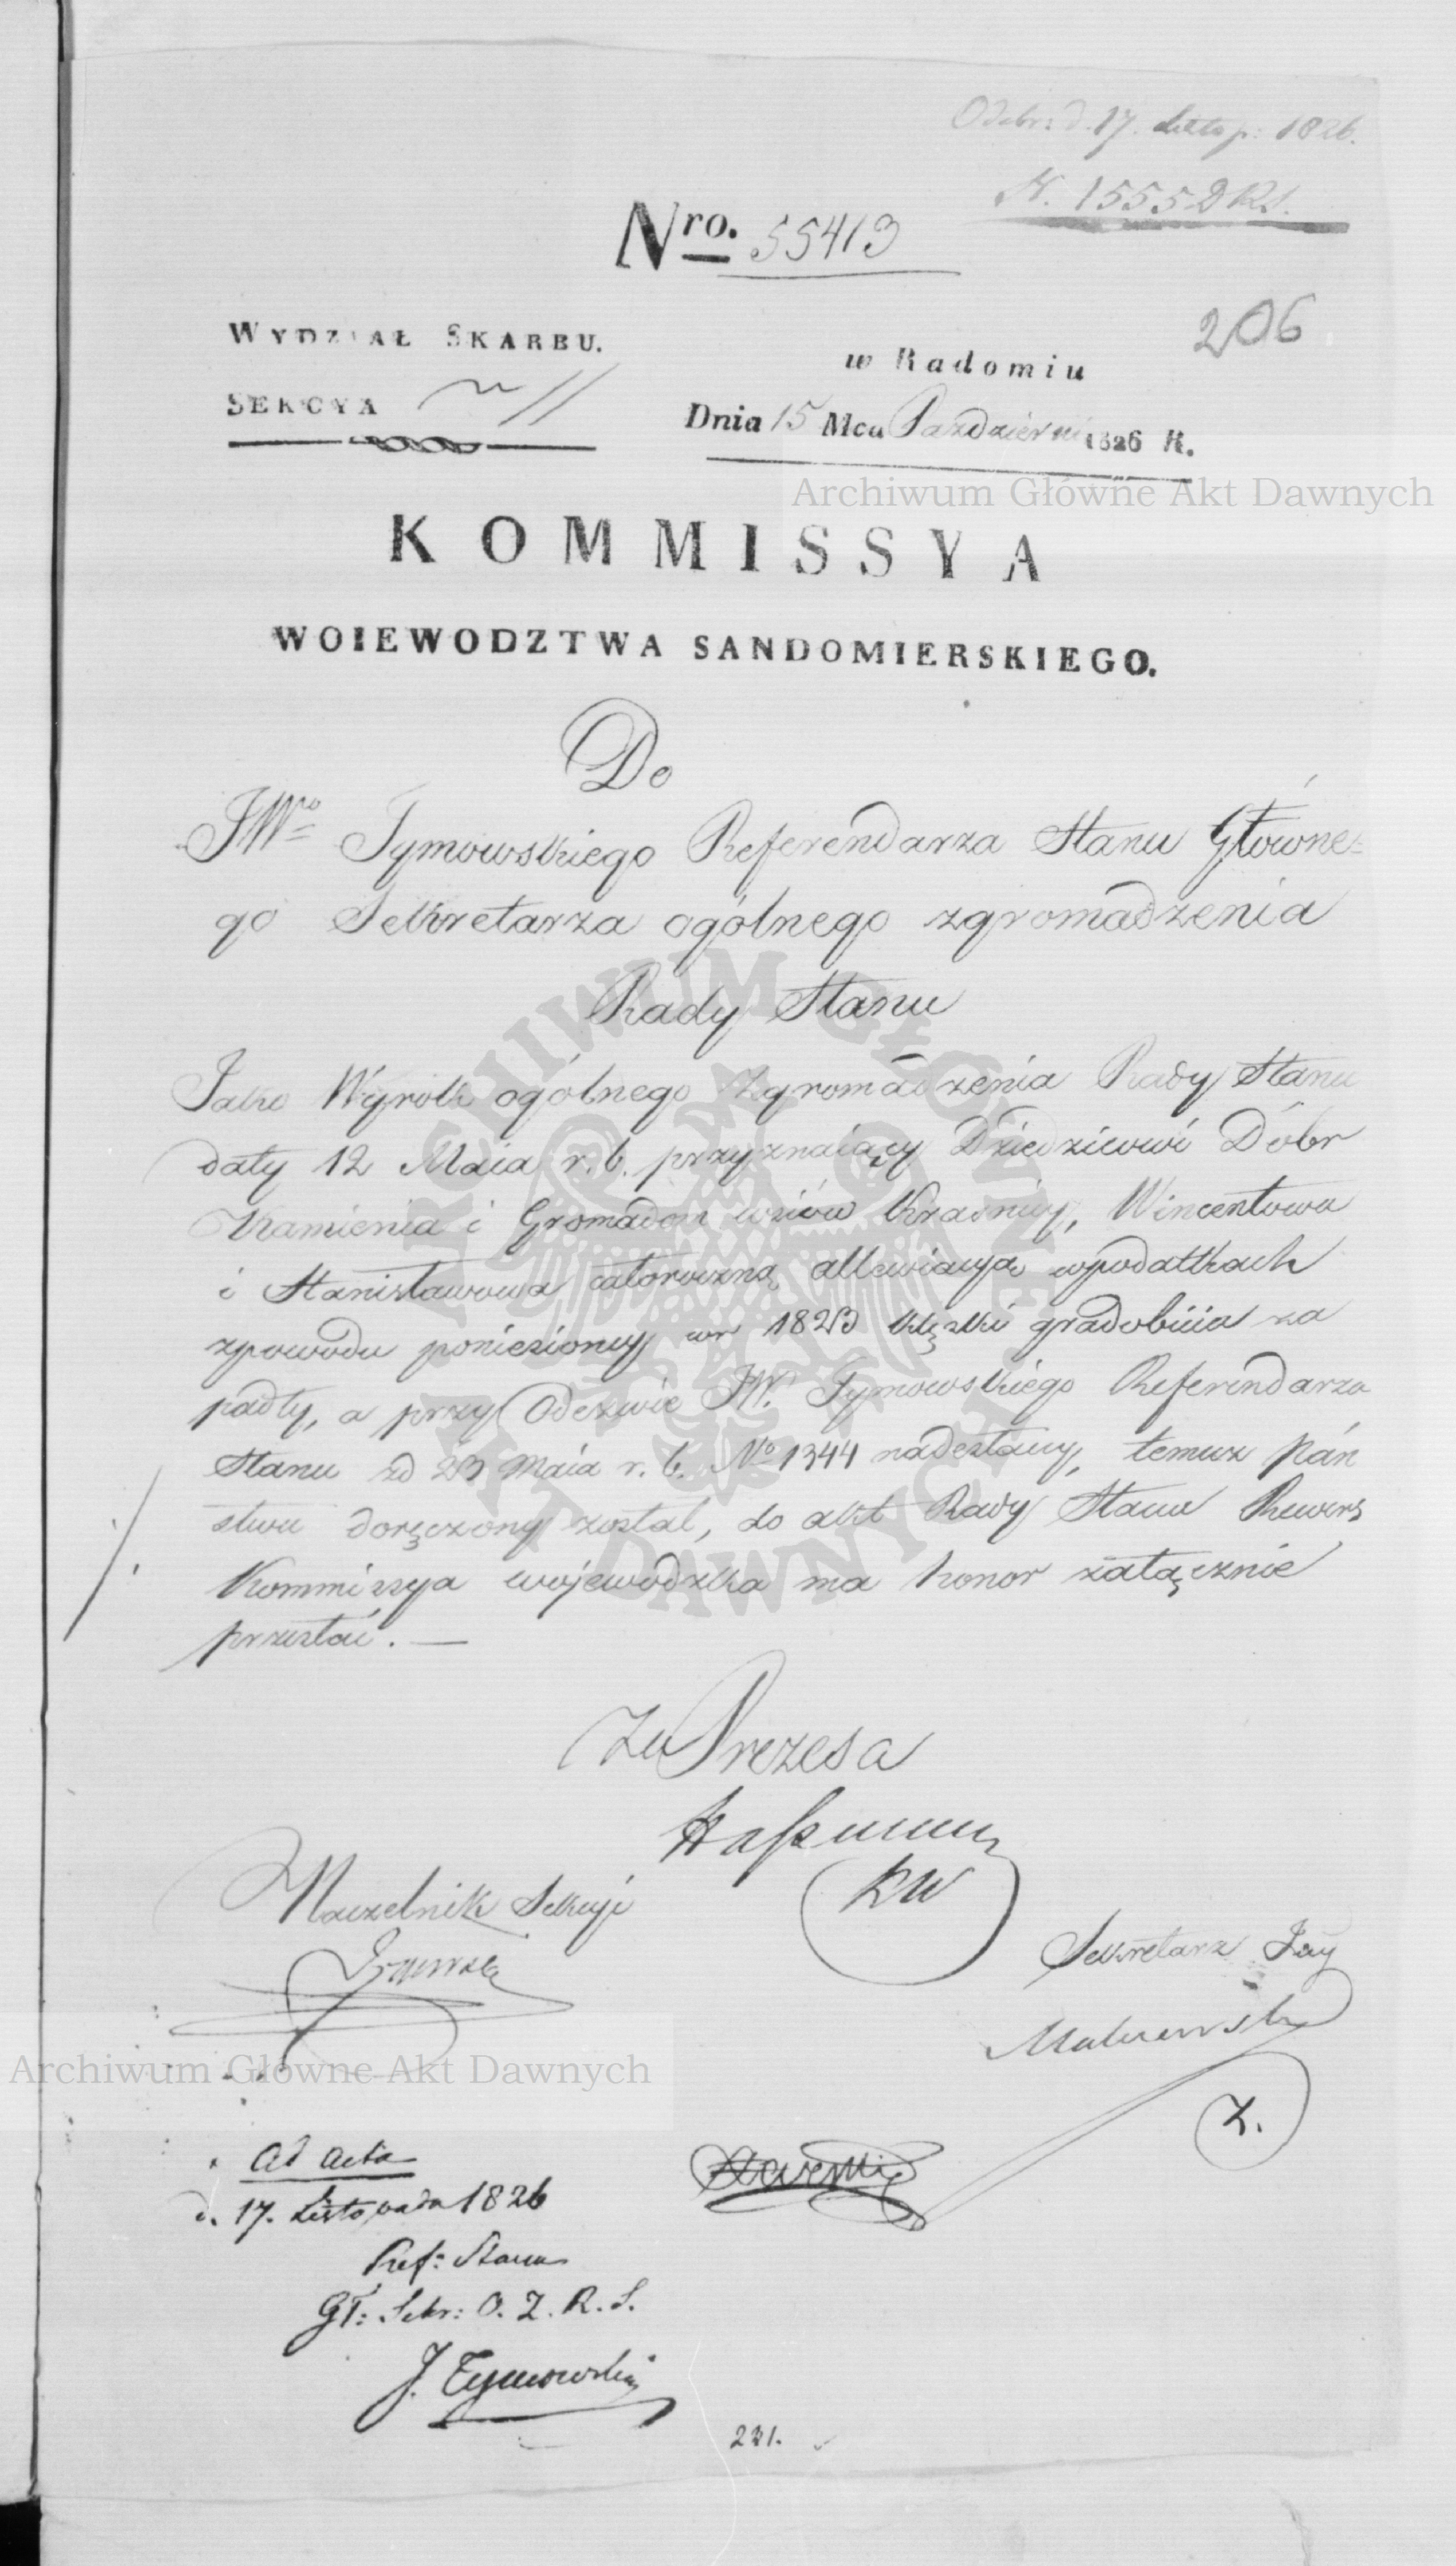 Odebr: d. 17. Listop: 1826.
N. 1555 D RS.
Nro. 55413
206
WYDZIAŁ SKARBU.
w Radomiu
SEKCYA II
Dnia 15 Mca Pazdzierni 1826 R.
Archiwum Główne Akt Dawnych
KOMMISSYA
WOIEWODZTWA SANDOMIERSKIEGO.
Do
JWo Tymowskiego Referendarza Stanu Główne=
go Sekretarza ogólnego zgromadzenia
Rady Stanu
Jako Wyrok ogólnego Zgromadzenia Rady Stanu
daty 12 Maia r. b. przyznaiący Dziedzicowi Dóbr
Kamienia i Gromadom wsiów Krasnicy, Wincentowa
i Stanisławowa całoroczną allewiacyą wpodatkach
zpowodu poniesioney wr 1823 klęski gradobicia za
padły, a przy Odezwie JW. Tymowskiego Referendarza
Stanu zd 23 Maia r. b. No 1344 nadesłany, temuz Pán
stwu doręczony został, do akt Rady Stanu Rewers
Kommissya wojewodzka ma honor załącznie
przesłać. —
Za Prezesa
KW
Naczelnik Sekcyi
Sekretarz Jny
Z.
Archiwum Główne Akt Dawnych
ad acta
d. 17. Listopada 1826
Ref: Stanu
Gł: Sekr: O. Z. R. S.
J. Tymowski
221.
ARCHIWUM GŁÓWNE AKT DAWNYCH